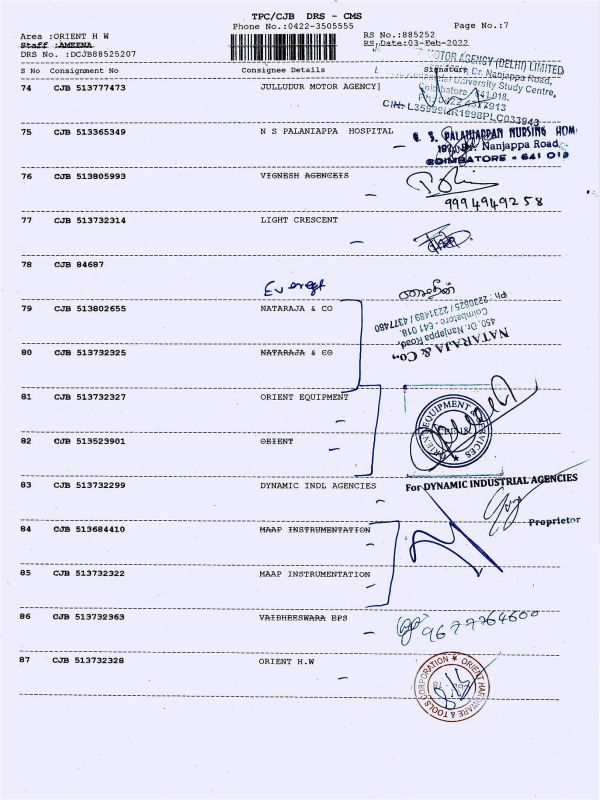 TPC/CJB DRS - CMS
Phone No.:0422-3505555 Page No.:7
Area :ORIENT H W RS No.:885252
Staff :AMEENA RS Date:03-Feb-2022
DRS No. :DCJB88525207
S No Consignment No Consignee Details Signature
MOTOR AGENCY (DELHI) LIMITED
Dr. Nanjappa Road,
University Study Centre,
Coimbatore - 641 018.
74 CJB 513777473 JULLUDUR MOTOR AGENCY]
75 CJB 513365349 N S PALANIAPPA HOSPITAL
N. S. PALANIAPPAN NURSING HOM
Nanjappa Road
COIMBATORE - 641 018
76 CJB 513805993 VIGNESH AGENCEIS
9994949258
77 CJB 513732314 LIGHT CRESCENT
78 CJB 84687
Everest
79 CJB 513802655 NATARAJA & CO
NATARAJA & Co.,
450, Dr. Nanjappa Road,
Coimbatore - 641 018.
Ph : 2230825 / 2231489 / 4377480
80 CJB 513732325 NATARAJA & CO
81 CJB 513732327 ORIENT EQUIPMENT
ORIENT EQUIPMENT & SERVICES
82 CJB 513523901 OEIENT
83 CJB 513732299 DYNAMIC INDL AGENCIES
For DYNAMIC INDUSTRIAL AGENCIES
Proprietor
84 CJB 513684410 MAAP INSTRUMENTATION
85 CJB 513732322 MAAP INSTRUMENTATION
86 CJB 513732363 VAIDHEESWARA EPS
9677764600
87 CJB 513732328 ORIENT H.W
ORIENT HARDWARE & TOOLS CORPORATION